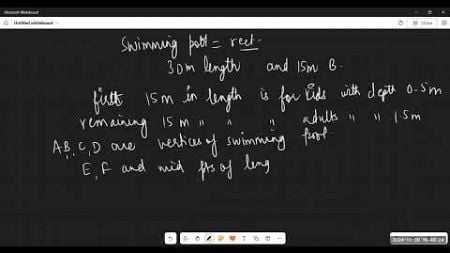 Microsoft Whiteboard
Untitled whiteboard
Share
Swimming pool = rect.
30m length and 15m B.
first 15m in length is for kids with depth 0.5m
remaining 15m " " " adults " " 1.5m
A, B, C, D are vertices of swimming pool
E, F and mid pts of leng